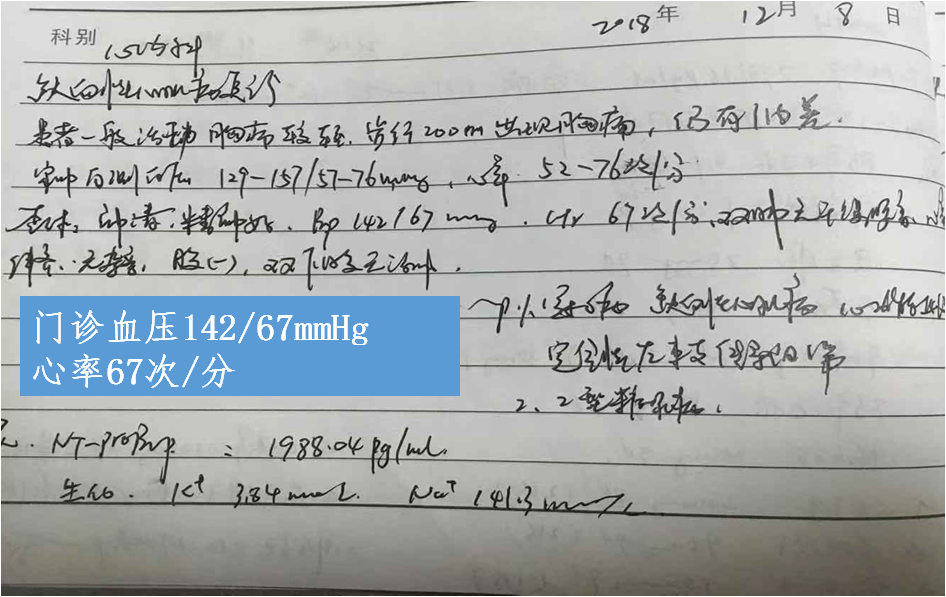 2018年 12月 8日
科别 心内科
缺血性心肌病复诊
患者一般活动 胸痛较轻. 步行200m出现胸痛,仍有
家中自测血压 129-157/57-76mmHg,心率 52-76次/分
查体:神清. 精神好. Bp 142/67 mmHg. Hr 67次/分,双肺
杂音. 腹(-),双下肢无浮肿.
门诊血压142/67mmHg
心率67次/分
缺血性心肌病
完全性左束支传导阻滞
2、2型糖尿病.
NT-proBnp : 1988.04 pg/ml.
生化. K⁺ 3.84 mmol/L. Na⁺ 141.3 mmol/L